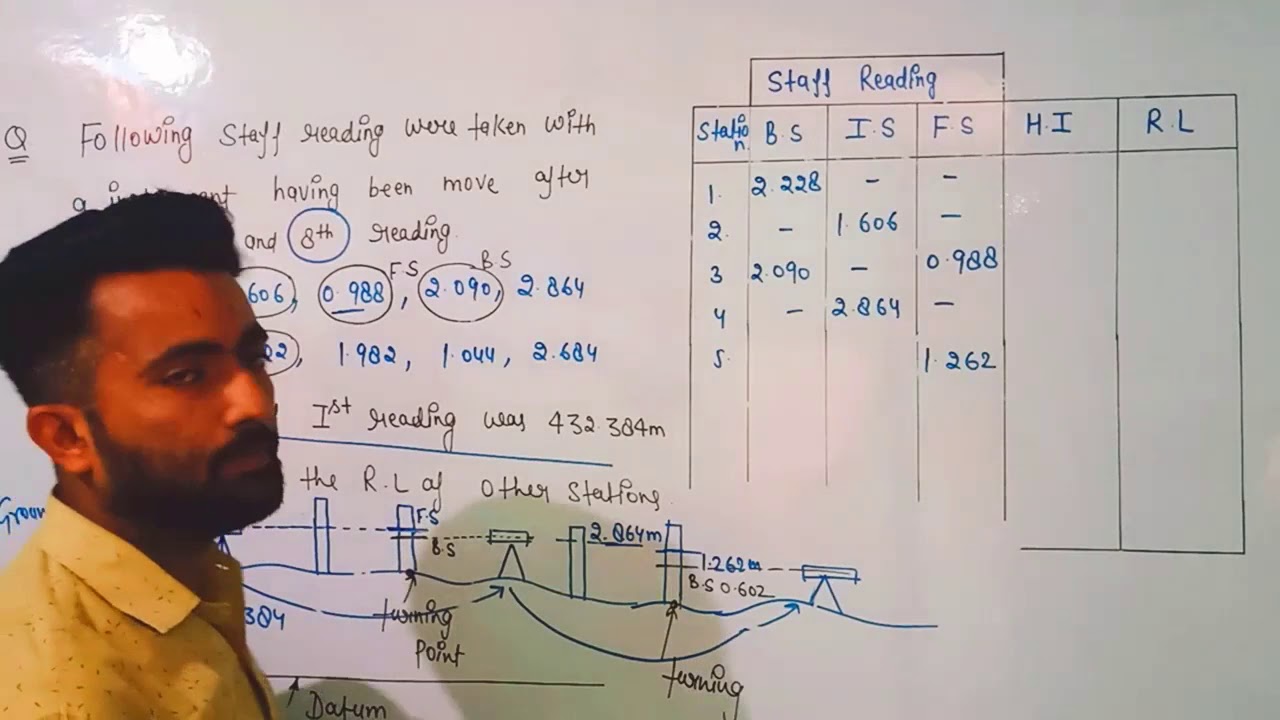 Q Following Staff reading were taken with
having been move after
and 8th reading.
F.S B.S
606, 0.988, 2.090, 2.864
22, 1.982, 1.044, 2.684
Ist reading was 432.384m
the R.L of Other Stations.
Staff Reading
Station B.S I.S F.S H.I R.L
1. 2.228 - -
2. - 1.606 -
3 2.090 - 0.988
4 - 2.864 -
5. 1.262
F.S
B.S
2.864m
1.262m
B.S 0.602
384
turning
Point
turning
Datum